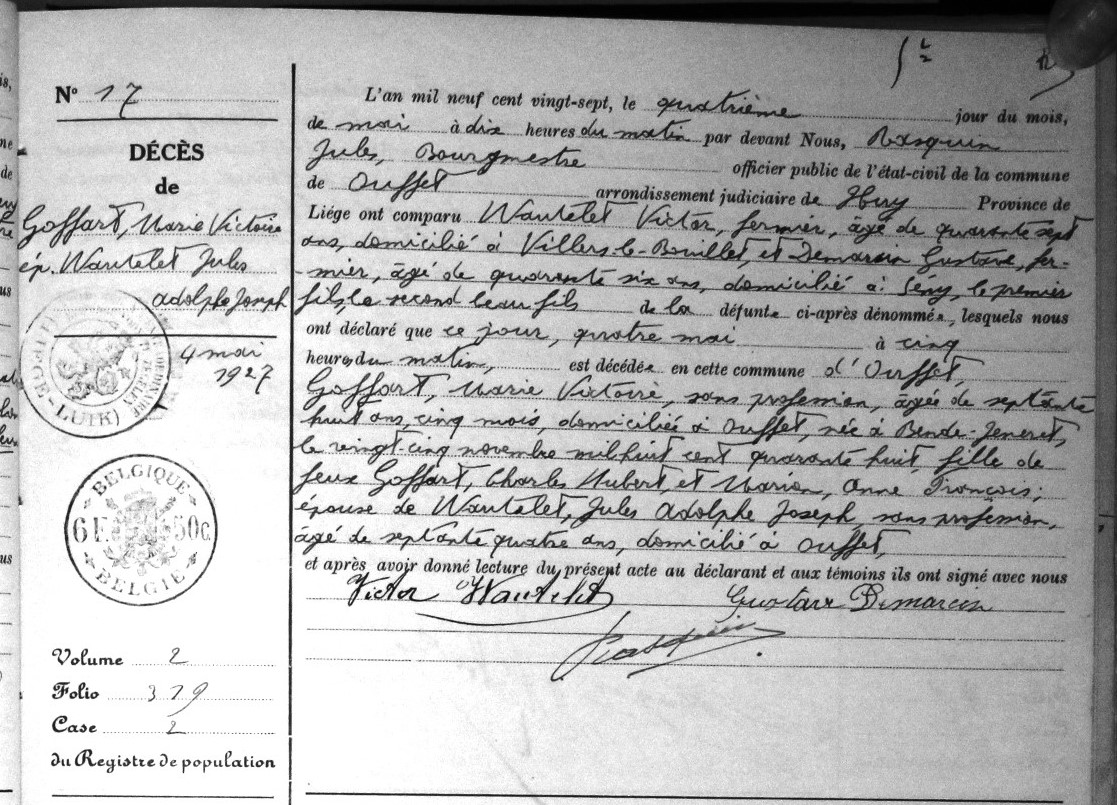 N° 17
DÉCÈS
de
Goffart, Marie Victoire
ép. Wautelet Jules
Adolphe Joseph
4 mai
1927
LUIK)
BELGIQUE
6 F. 50 c.
BELGIË
Volume 2
Folio 319
Case 2
du Registre de population
L'an mil neuf cent vingt-sept, le quatrième jour du mois,
de mai à dix heures du matin par devant Nous, Rasquin
Jules, Bourgmestre officier public de l'état-civil de la commune
de Ouffet arrondissement judiciaire de Huy Province de
Liége ont comparu Wautelet Victor, fermier, âgé de quarante sept
ans, domicilié à Villers-le-Bouillet, et Demarcin Gustave, fer-
-mier, âgé de quarante six ans, domicilié à Seny, le premier
fils, le second beau fils de la défunte ci-après dénommée, lesquels nous
ont déclaré que ce jour, quatre mai à cinq
heures du matin, est décédée en cette commune d'Ouffet,
Goffart, Marie Victoire, sans profession, âgée de septante
huit ans, cinq mois, domiciliée à Ouffet, née à Bende-Jeneret,
le vingt-cinq novembre mil huit cent quarante huit, fille de
feux Goffart, Charles Hubert, et Marion, Anne François;
épouse de Wautelet, Jules Adolphe Joseph, sans profession,
âgé de septante quatre ans, domicilié à Ouffet,
et après avoir donné lecture du présent acte au déclarant et aux témoins ils ont signé avec nous
Victor Wautelet Gustave Demarcin
Rasquin